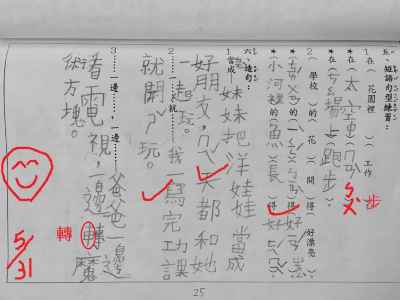 五、短語句型練習：
1.在（ 花園裡 ）工作
*在（太空ㄇㄢ步）
*在（ㄘㄠ場上跑步）
2.（學校）的（花）（開）得（好漂亮）
*小河裡的（魚）（長）得
六、造句：
1.……當成……
妹妹把洋娃娃當成
好朋友，ㄇㄟ天都和她
一起玩。
2.一……就……我一寫完功課
就開ㄕ玩。
3.一邊……，一邊……爸爸一邊
看電視，一邊轉魔
術方塊。
轉
步
5/31
25